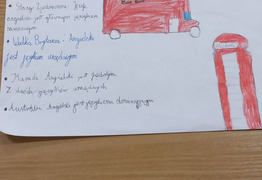 • Stany Zjednoczone: Język
angielski jest głównym językiem
• Wielka Brytania: Angielski
jest językiem urzędowym
• Kanada: Angielski jest jednym
z dwóch języków urzędowych
• Australia: Angielski jest językiem dominującym